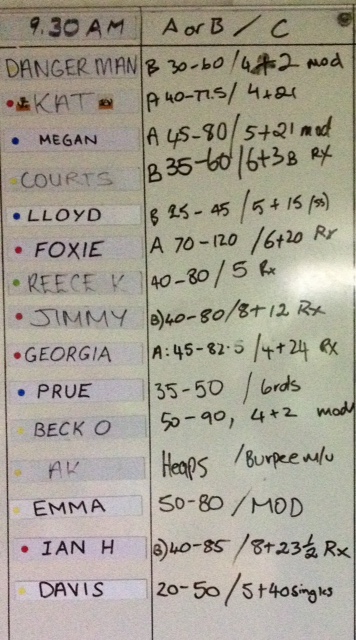 9.30 AM A or B / C
DANGER MAN B 30-60 / 4+2 mod
KAT A 40-77.5 / 4+21
MEGAN A 45-80 / 5+21 mod
COURTS B 35-60 / 6+3B RX
LLOYD B 25-45 / 5+15 (ss)
FOXIE A 70-120 / 6+20 Rx
REECE K 40-80 / 5 Rx
JIMMY B) 40-80 / 8+12 Rx
GEORGIA A: 45-82.5 / 4+24 RX
PRUE 35-50 / 6rds
BECK O 50-90, 4+2 mod
AK Heaps / Burpee m/u
EMMA 50-80 / MOD
IAN H B) 40-85 / 8+23½ Rx
DAVIS 20-50 / 5+40 singles